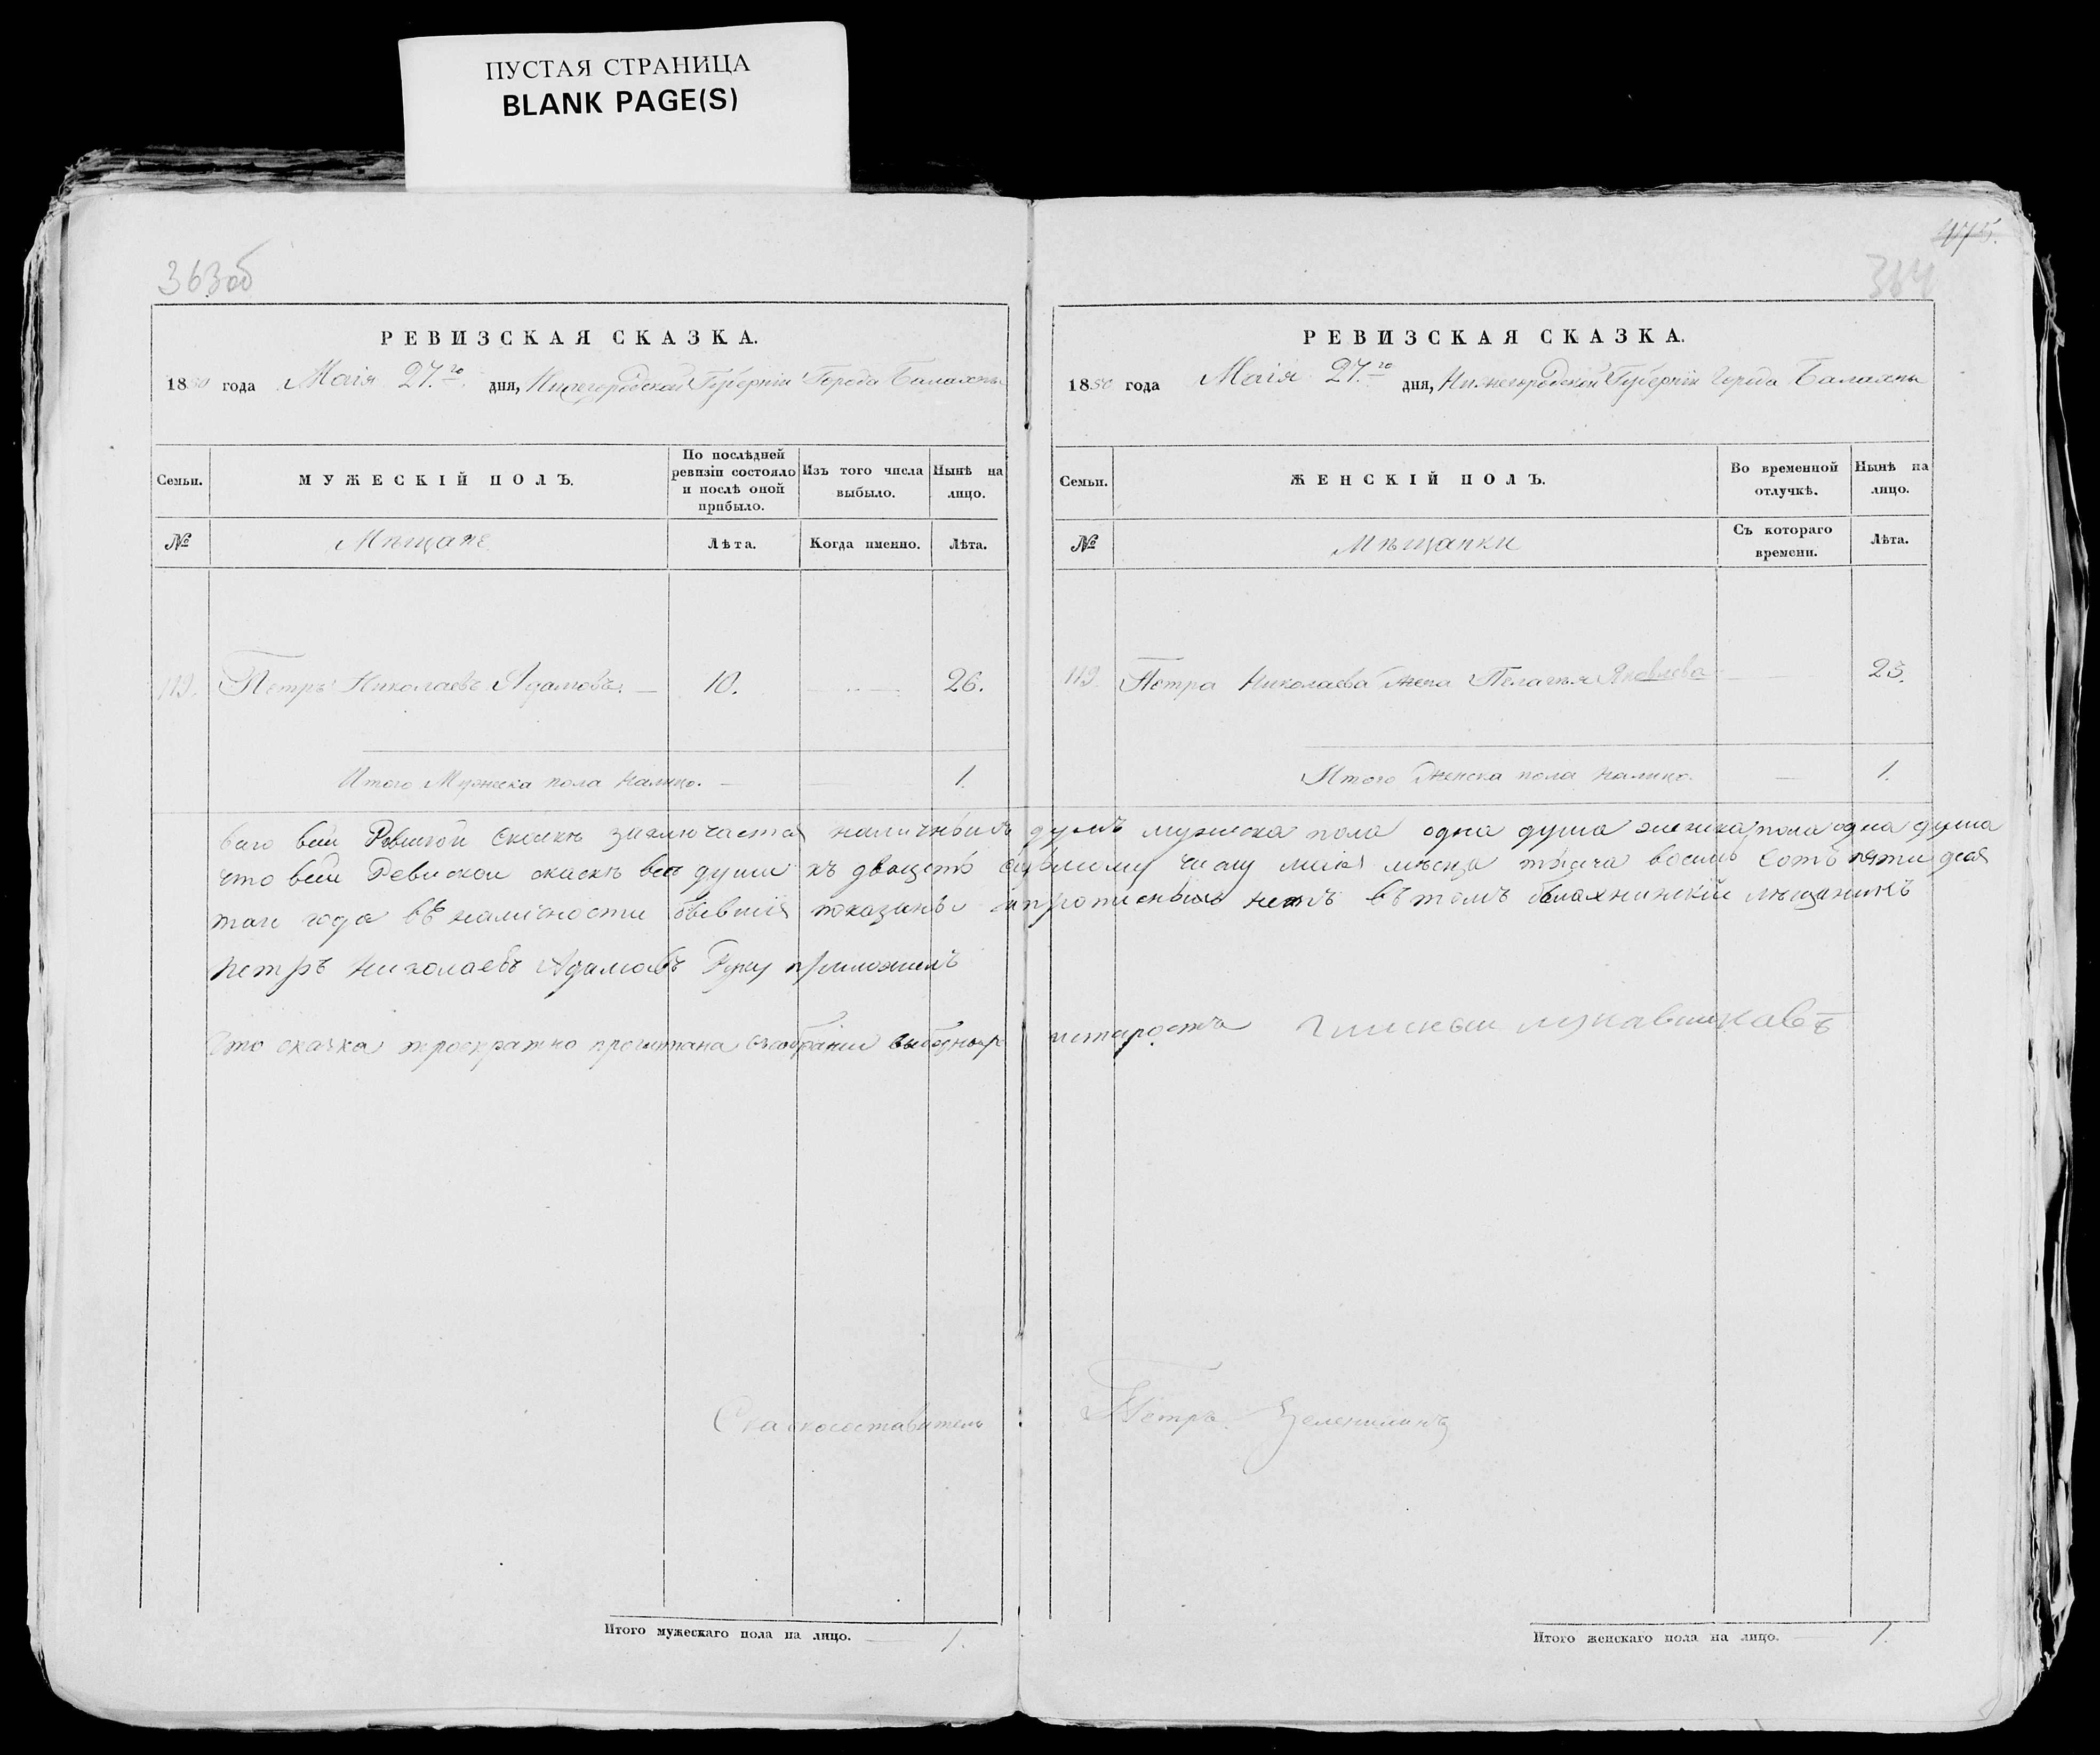 ПУСТАЯ СТРАНИЦА
BLANK PAGE(S)
363об
РЕВИЗСКАЯ СКАЗКА.
1850 года Маія 27.го дня, Нижегородской Губерніи Города Балахны
Семьи. МУЖЕСКІЙ ПОЛЪ. По послѣдней ревизіи состояло и послѣ оной прибыло. Изъ того числа выбыло. Нынѣ на лицо.
№ Мѣщане Лѣта. Когда именно. Лѣта.
119. Петръ Николаевъ Адамовъ. — 10. — 26.
Итого Мужеска пола налицо. — — 1.
475.
364
РЕВИЗСКАЯ СКАЗКА.
1850 года Маія 27.го дня, Нижегородской Губерніи Города Балахны
Семьи. ЖЕНСКІЙ ПОЛЪ. Во временной отлучкѣ. Нынѣ на лицо.
№ Мѣщанки Съ котораго времени. Лѣта.
119. Петра Николаева жена Пелагея Яковлева — 23.
Итого Женска пола налицо. — 1.
всей Ревиской Скаскѣ заключается наличныхъ душъ мужеска пола одна душа женска пола одна душа
что всей Ревиской скаскѣ все души къ двацеть седмому числу маія мѣсеца тысяча восимь Сотъ пяти деся
таго года въ наличности бывшія показаны и прописныхъ нетъ въ томъ балахнинскій мещанинъ
Петръ Николаевъ Адамовъ Руку приложилъ
Что скаска троекратно прочитана староста
Сказкосоставитель Петръ
Итого мужескаго пола на лицо. — 1.
Итого женскаго пола на лицо. — 1.